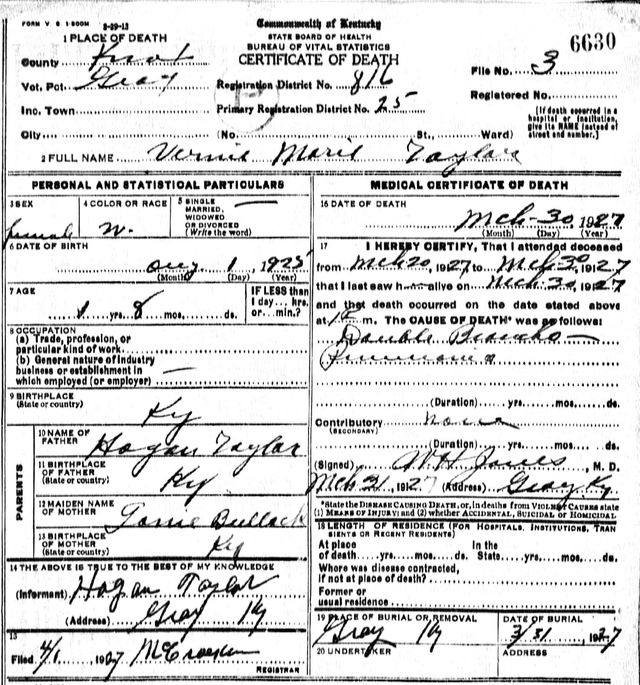 FORM V. S. 1-500M 8-29-13
Commonwealth of Kentucky
STATE BOARD OF HEALTH
BUREAU OF VITAL STATISTICS
CERTIFICATE OF DEATH
6630
1 PLACE OF DEATH
County Knox
Vot. Pct. Gray
Inc. Town
City
Registration District No. 816
Primary Registration District No. 25
(No. St., Ward)
File No. 3
Registered No.
[If death occurred in a
hospital or institution,
give its NAME instead of
street and number.]
2 FULL NAME Vernie Marie Taylor
PERSONAL AND STATISTICAL PARTICULARS
3 SEX
female
4 COLOR OR RACE
W.
5 SINGLE
MARRIED,
WIDOWED
OR DIVORCED
(Write the word)
6 DATE OF BIRTH
Aug 1, 1925
(Month) (Day) (Year)
7 AGE
1 yrs. 8 mos. ds.
IF LESS than
1 day... hrs.
or... min.?
8 OCCUPATION
(a) Trade, profession, or
particular kind of work
(b) General nature of industry
business or establishment in
which employed (or employer)
9 BIRTHPLACE
(State or country)
Ky
PARENTS
10 NAME OF
FATHER
Hogan Taylor
11 BIRTHPLACE
OF FATHER
(State or country)
Ky
12 MAIDEN NAME
OF MOTHER
Bullock
13 BIRTHPLACE
OF MOTHER
(State or country)
Ky
14 THE ABOVE IS TRUE TO THE BEST OF MY KNOWLEDGE
(Informant) Hogan Taylor
(Address) Gray Ky
15
Filed 4/1 1927
REGISTRAR
MEDICAL CERTIFICATE OF DEATH
16 DATE OF DEATH
Mch-30, 1927
(Month) (Day) (Year)
17 I HEREBY CERTIFY, That I attended deceased
from Mch 20, 1927 to Mch 30, 1927
that I last saw h alive on Mch 30, 1927
and that death occurred on the date stated above
at m. The CAUSE OF DEATH* was as follows:
Double Broncho-
Pneumonia
(Duration) yrs. mos. ds.
Contributory none
(SECONDARY)
(Duration) yrs. mos. ds.
(Signed) W H Jones, M. D.
Mch 31, 1927 (Address) Gray Ky
*State the DISEASE CAUSING DEATH, or, in deaths from VIOLENT CAUSES state
(1) MEANS OF INJURY; and (2) whether ACCIDENTAL, SUICIDAL or HOMICIDAL
18 LENGTH OF RESIDENCE (FOR HOSPITALS, INSTITUTIONS, TRAN
SIENTS OR RECENT RESIDENTS)
At place
of death yrs. mos. ds.
In the
State yrs. mos. ds.
Where was disease contracted,
if not at place of death?
Former or
usual residence
19 PLACE OF BURIAL OR REMOVAL
Gray Ky
DATE OF BURIAL
3/31, 1927
20 UNDERTAKER
ADDRESS